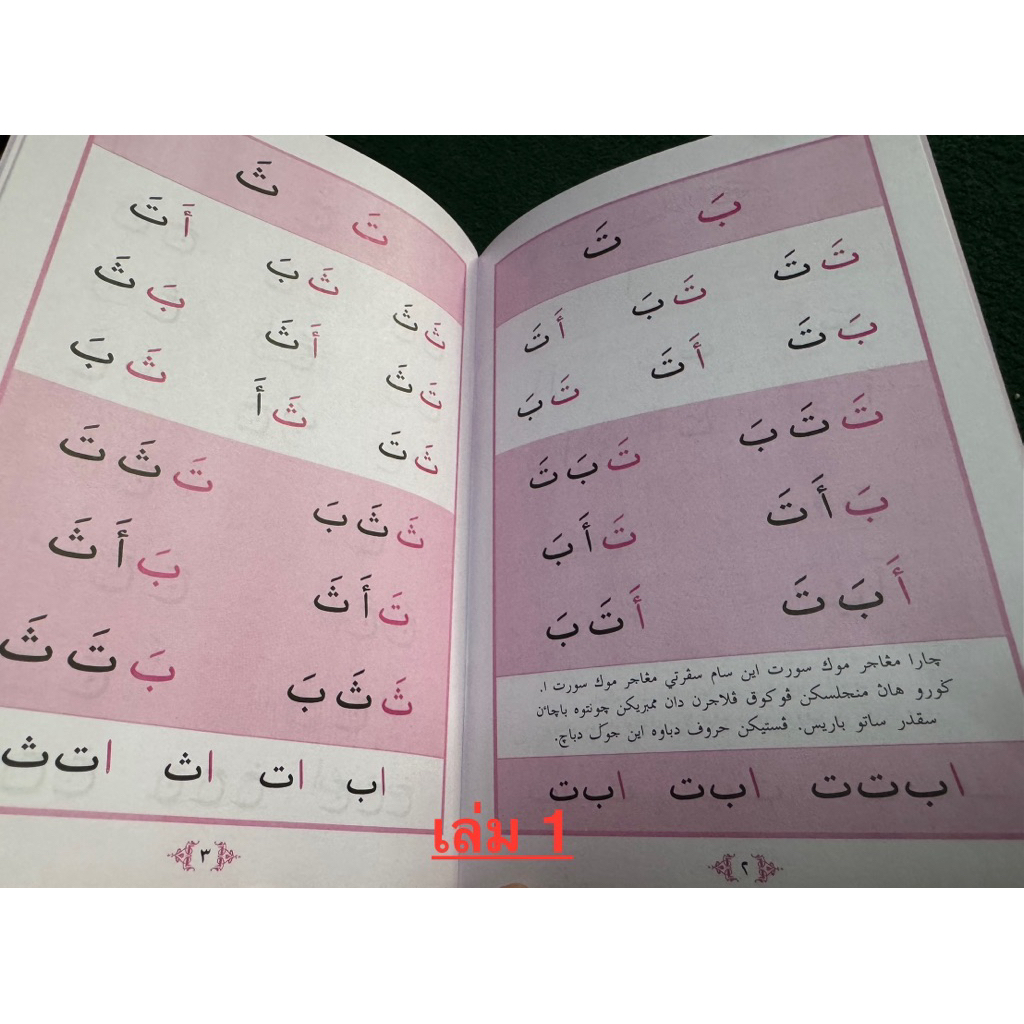 بَ تَ
تَ تَ   تَ بَ   أَ تَ
بَ تَ   أَ تَ   تَ بَ
تَ تَ بَ   تَ بَ تَ
بَ أَ تَ   تَ أَ بَ
أَ بَ تَ   أَ تَ بَ
چارا مڠاجر موك سورت اين سام سڤرتي مڠاجر موك سورت ١.
ݢورو هاڽ منجلسكن ڤوكوق ڤلاجرن دان ممبريكن چونتوه باچاءن
سقدر ساتو باريس. ڤستيكن حروف دباوه اين جوݢ دباچ.
ا ب ت ت   ا ب ت   ا ب ت
٢
تَ ثَ
ثَ ثَ   ثَ بَ   أَ تَ
تَ ثَ   أَ ثَ   بَ ثَ
ثَ تَ   ثَ أَ   ثَ بَ
ثَ ثَ بَ   تَ ثَ تَ
تَ أَ ثَ   بَ أَ ثَ
ثَ ثَ بَ   بَ تَ ثَ
ا ب   ا ت   ا ث   ا ت ث
٣
เล่ม 1